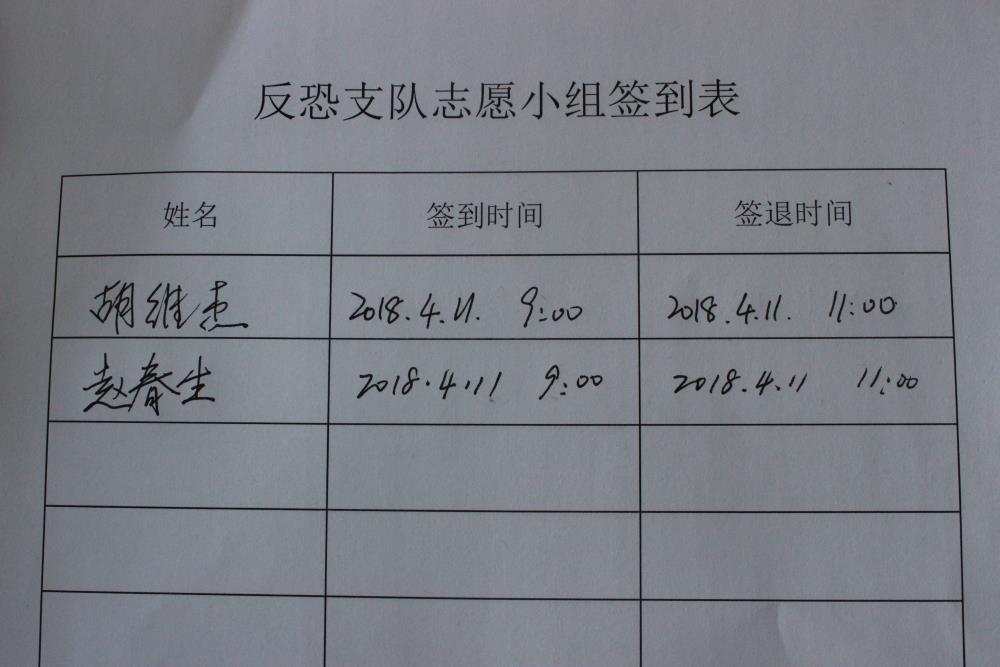 反恐支队志愿小组签到表
姓名 签到时间 签退时间
胡维杰 2018.4.11. 9:00 2018.4.11. 11:00
赵春生 2018.4.11 9:00 2018.4.11 11:00